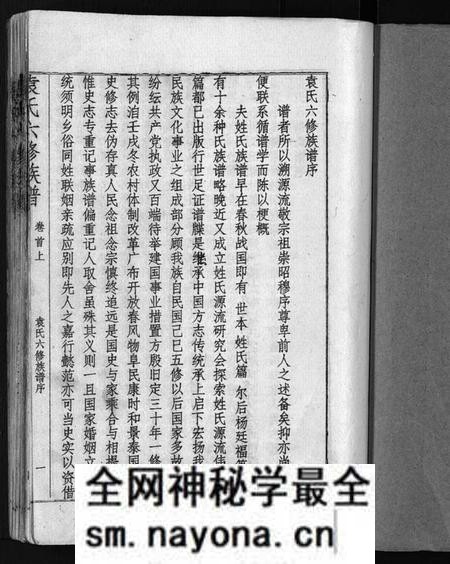 袁氏六修族谱序
谱者所以溯源流敬宗祖崇昭穆序尊卑前人之述备矣抑亦尚
便联系循谱学而陈以梗概
夫姓氏族谱早在春秋战国即有 世本 姓氏篇 尔后杨廷福笔
有十余种氏族谱略晚近又成立姓氏源流研究会探索姓氏源流伟
篇都已出版行世足证谱牒是继承中国方志传统承上启下宏扬我
民族文化事业之组成部分顾我族自民国己巳五修以后国家多故
纷纭共产党执政又百端待举建国事业措置方殷旧定三十年一修
其例泊壬戌冬农村体制改革广布开放春风物阜民康时和景泰国
史修志去伪存真人民念祖念宗慎终追远是国史与家乘合与相
惟史志专重记事族谱偏重记人取舍虽殊其义则一且国家婚姻立
统须明乡俗同姓联姻亲疏应别即先人之嘉行懿范亦可当史实以资借
袁氏六修族谱
卷首上
袁氏六修族谱序
一
全网神秘学最全
sm.nayona.cn